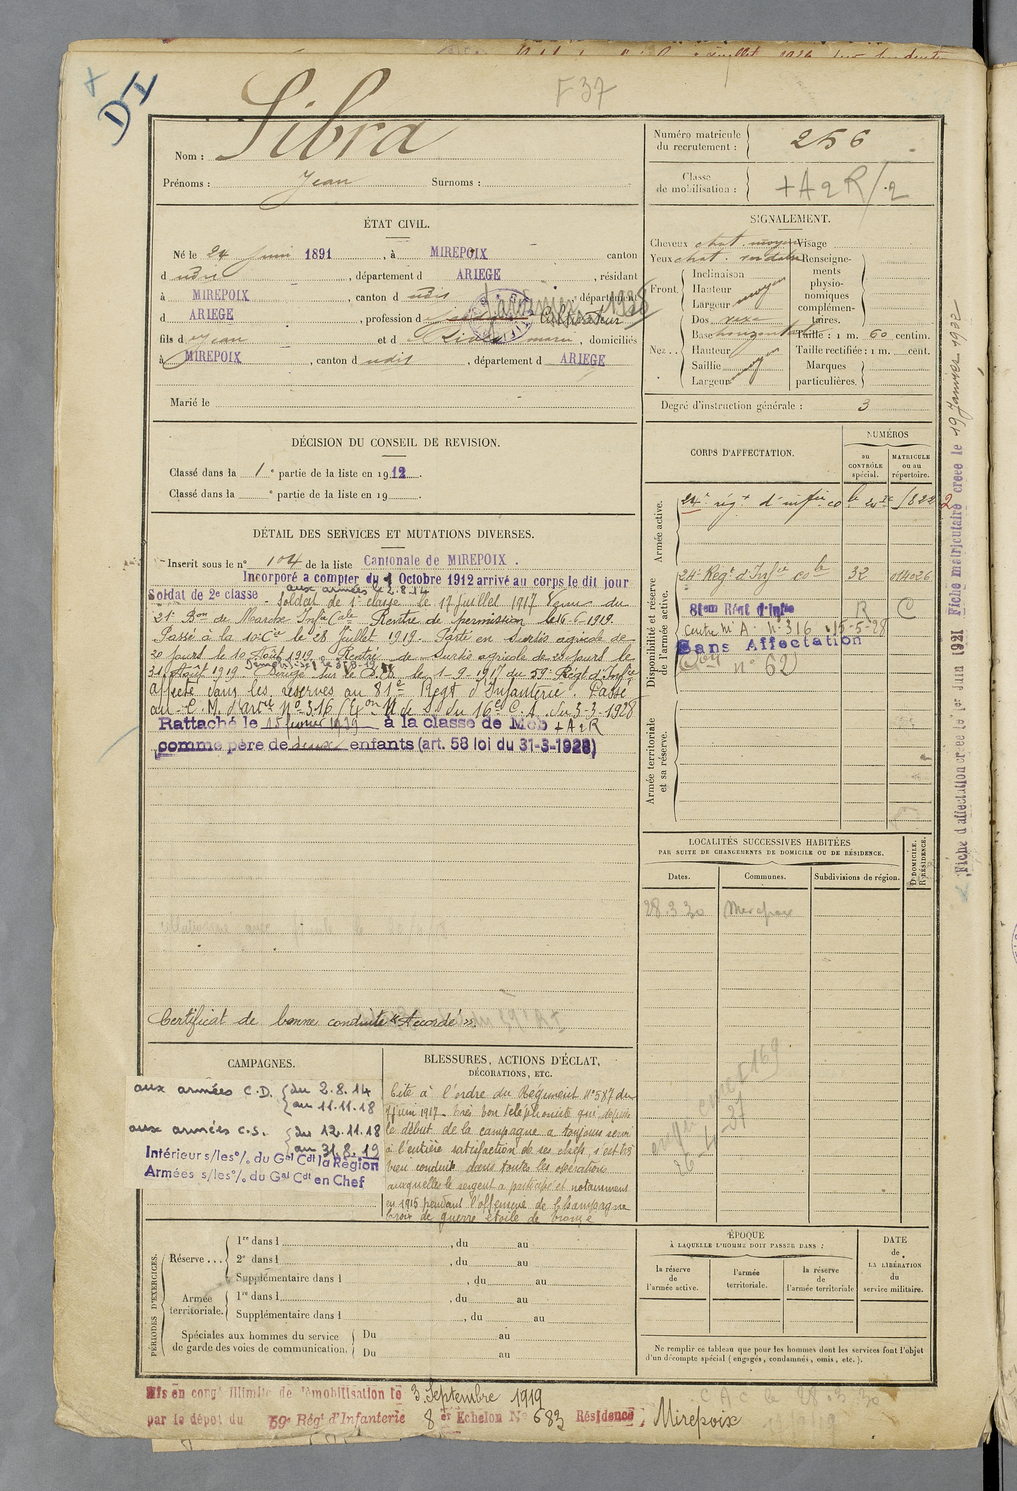 DI
F 37
Nom : Sibra
Prénoms : Jean Surnoms :
Numéro matricule du recrutement : 256
Classe de mobilisation : +A2R/2
ÉTAT CIVIL.
Né le 24 Juin 1891, à MIREPOIX canton
d udit, département d ARIEGE, résidant
à MIREPOIX, canton d udit, département
d ARIEGE, profession d Cultivateur
fils d Jean et d marie, domiciliés
à MIREPOIX, canton d udit, département d ARIEGE
Marié le
SIGNALEMENT.
Cheveux chat. moyen Visage
Yeux chat. Renseigne-
ments
physio-
nomiques
complémen-
taires.
Front. Inclinaison
Hauteur moyen
Largeur
Nez. Dos vexe
Base horizontale Taille : 1 m. 60 centim.
Hauteur moyen Taille rectifiée : 1 m. cent.
Saillie Marques
Largeur particulières.
Degré d'instruction générale : 3
DÉCISION DU CONSEIL DE REVISION.
Classé dans la 1e partie de la liste en 1912.
Classé dans la e partie de la liste en 19
CORPS D'AFFECTATION.
NUMÉROS
au CONTRÔLE spécial.
MATRICULE ou au répertoire.
Armée active.
24e régt d'infie co
Disponibilité et réserve de l'armée active.
24e Régt d'Infie Cole 32 014026
81em Régt d'Infie R C
Centre M A. n° 316 15-5-28
Sans Affectation
n° 62
Armée territoriale et sa réserve.
DÉTAIL DES SERVICES ET MUTATIONS DIVERSES.
Inscrit sous le n° 104 de la liste Cantonale de MIREPOIX.
Incorporé a compter du 1 Octobre 1912 arrivé au corps le dit jour
aux armées le 2.8.14
Soldat de 2e classe - Soldat de 1e classe le 17 Juillet 1917 Venu du
21e Bon de Marche Infie Cole Rentre de permission le 16-6-1919.
Passé à la 10e Cie le 28 Juillet 1919. Parti en Sursis agricole de
20 jours le 10 Août 1919. Rentré de Sursis agricole de 20 jours le
31 Août 1919. le 1-9-1919 du 59e Régt d'Infie
affecté dans les réserves au 81e Régt d'Infanterie. Passé
au C. M. d'artie N° 316 du 16e C. A. du 3-3-1928
Rattaché le 15 février 1939 à la classe de Mob +A2R
comme père de deux enfants (art. 58 loi du 31-3-1928)
Certificat de bonne conduite "Accordé".
LOCALITÉS SUCCESSIVES HABITÉES
PAR SUITE DE CHANGEMENTS DE DOMICILE OU DE RÉSIDENCE.
Dates. Communes. Subdivisions de région. D. DOMICILE. R. RÉSIDENCE.
28.3.30 Mirepoix
CAMPAGNES.
aux armées C.D. du 2.8.14
au 11.11.18
aux armées C.S. du 12.11.18
au 31.8.19
Intérieur s/les % du Gal Cdt la Région
Armées s/les % du Gal Cdt en Chef
BLESSURES, ACTIONS D'ÉCLAT,
DÉCORATIONS, ETC.
Cité à l'ordre du Régiment N° 587 du
juin 1917. Très bon téléphoniste qui depuis
le début de la campagne a toujours servi
à l'entière satisfaction de ses chefs, s'est très
bien conduit dans toutes les opérations
auxquelles le sergent a participé et notamment
en 1915 pendant l'offensive de Champagne
Croix de guerre étoile de bronze
PÉRIODES D'EXERCICES.
Réserve... 1re dans l , du au
2e dans l , du au
Supplémentaire dans l , du au
Armée territoriale. 1re dans l , du au
Supplémentaire dans l , du au
Spéciales aux hommes du service Du au
de garde des voies de communication. Du au
ÉPOQUE
À LAQUELLE L'HOMME DOIT PASSER DANS :
la réserve de l'armée active.
l'armée territoriale.
la réserve de l'armée territoriale
DATE de LA LIBÉRATION du service militaire.
Ne remplir ce tableau que pour les hommes dont les services font l'objet
d'un décompte spécial (engagés, condamnés, omis, etc.).
Mis en congé illimité de démobilisation le 3 Septembre 1919
par le dépôt du 59e Régt d'Infanterie 8er Echelon N° 683 Résidence, Mirepoix
Fiche d'affectation créée le 1er Juin 1921 Fiche matriculaire créée le 19 Janvier 1932